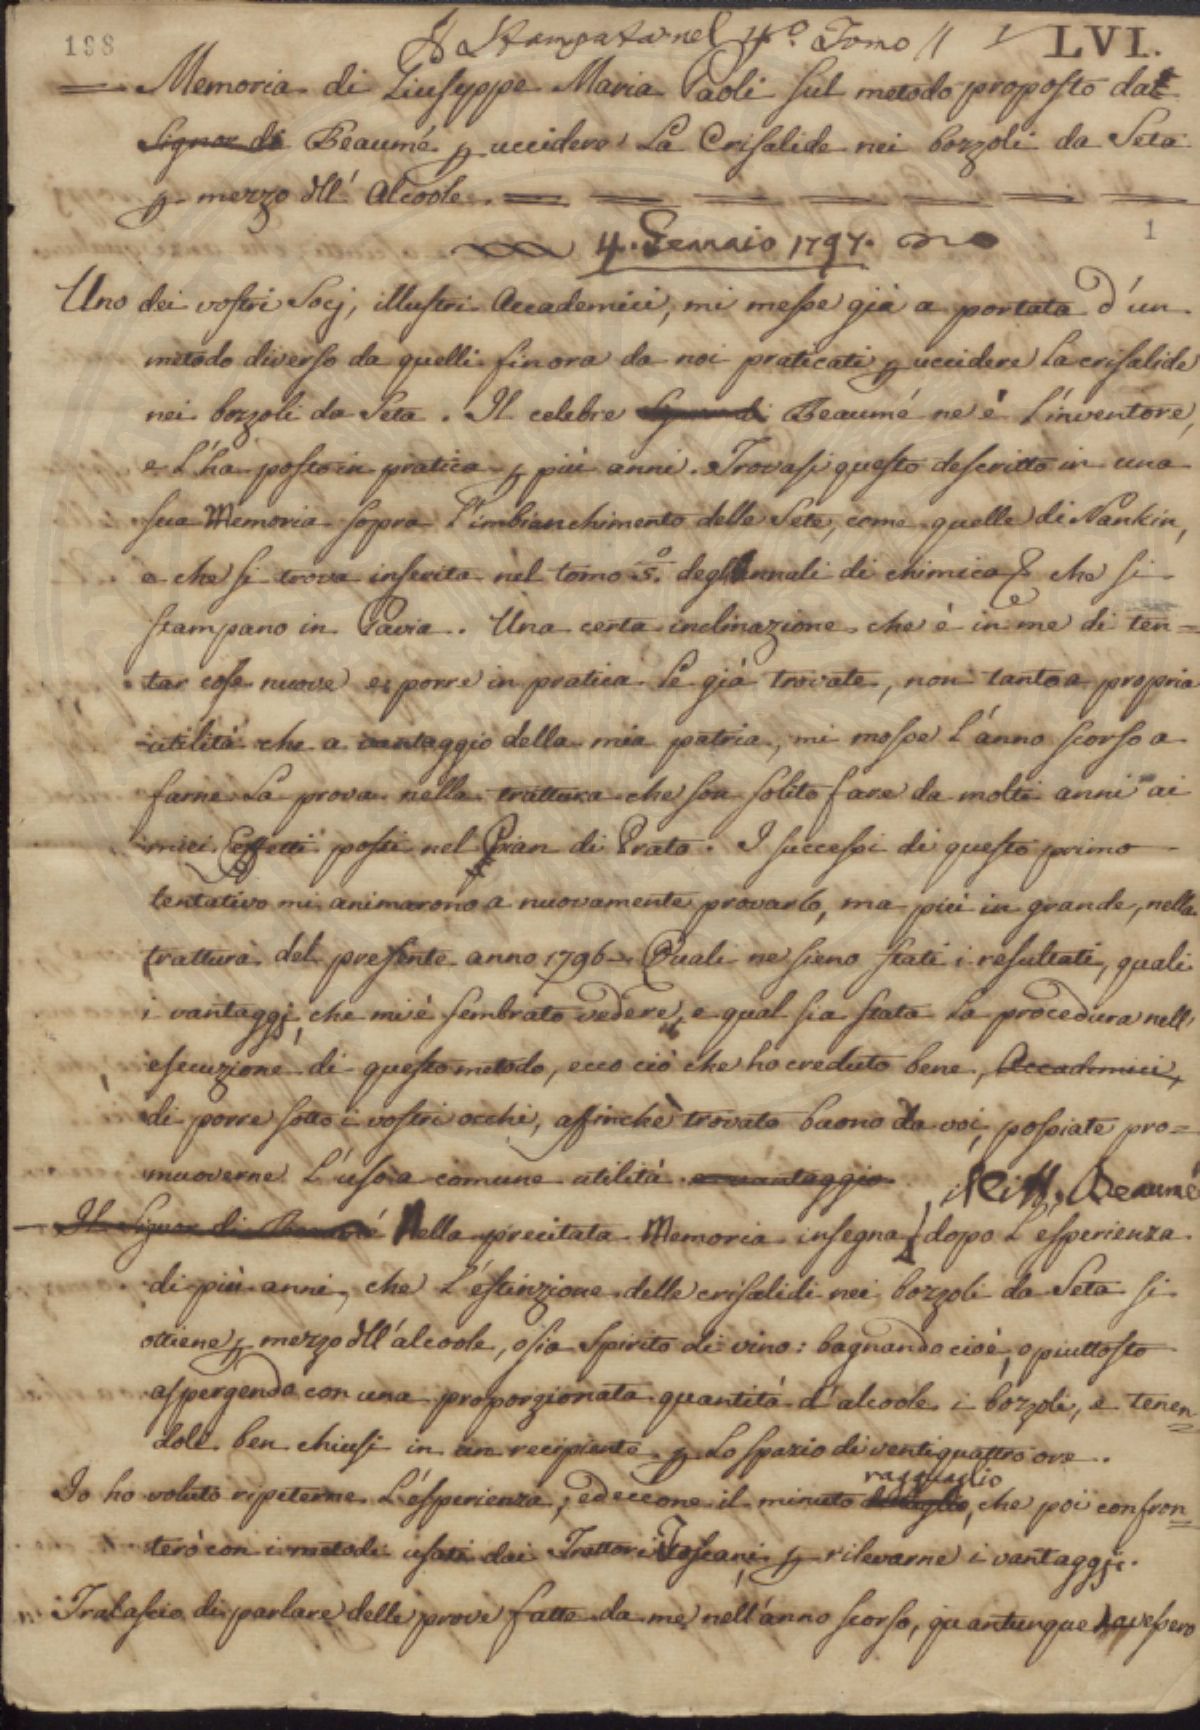 198
Stampata nel 4.º Tomo // LVI.
Memoria di Giuseppe Maria Paoli sul metodo proposto dal
Signor di Beaumé p uccidere La Crisalide nei bozzoli da Seta
p mezzo dll' Alcoole.
4. Gennaio 1797.
1
Uno dei vostri Socj, illustri Accademici, mi messe già a portata d'un
metodo diverso da quelli finora da noi praticati p uccidere la crisalide
nei bozzoli da Seta. Il celebre Beaumé ne è l'inventore,
e l'ha posto in pratica p più anni. Trovasi questo descritto in una
sua Memoria sopra l'imbianchimento delle Sete, come quelle di Nankin,
e che si trova inserita nel tomo 5.º degl'Annali di chimica che si
stampano in Pavia. Una certa inclinazione che è in me di ten=
tar cose nuove e porre in pratica le già trovate, non tanto a propria
utilità che a vantaggio della mia patria, mi mosse l'anno scorso a
farne la prova nella trattura che son solito fare da molti anni ai
miei Effetti posti nel Pian di Prato. I successi di questo primo
tentativo mi animarono a nuovamente provarlo, ma più in grande, nella
trattura del presente anno 1796. Quali ne sieno stati i resultati, quali
i vantaggj, che mi è sembrato vedere, e qual sia stata la procedura nell'
esecuzione di questo metodo, ecco ciò che ho creduto bene, Accademici,
di porre sotto i vostri occhi, affinchè trovato buono da voi, possiate pro=
muoverne l'uso a comune utilità e vantaggio.
il Citt. Beaumé
Il Signor di Beaumé Nella precitata Memoria insegna dopo l'esperienza
di più anni, che l'estinzione delle crisalidi nei bozzoli da Seta si
ottiene p mezzo dll'alcoole, o sia Spirito di vino: bagnando cioè, o piuttosto
aspergendo con una proporzionata quantità d'alcoole i bozzoli, e tenen=
doli ben chiusi in un recipiente p lo spazio di ventiquattro ore.
ragguaglio
Io ho voluto ripeterne l'esperienza, ed eccone il minuto dettaglio, che poi confron=
terò con i metodi usati dai Trattori Toscani p rilevarne i vantaggj.
Tralascio di parlare delle prove fatte da me nell'anno scorso, quantunque avessero